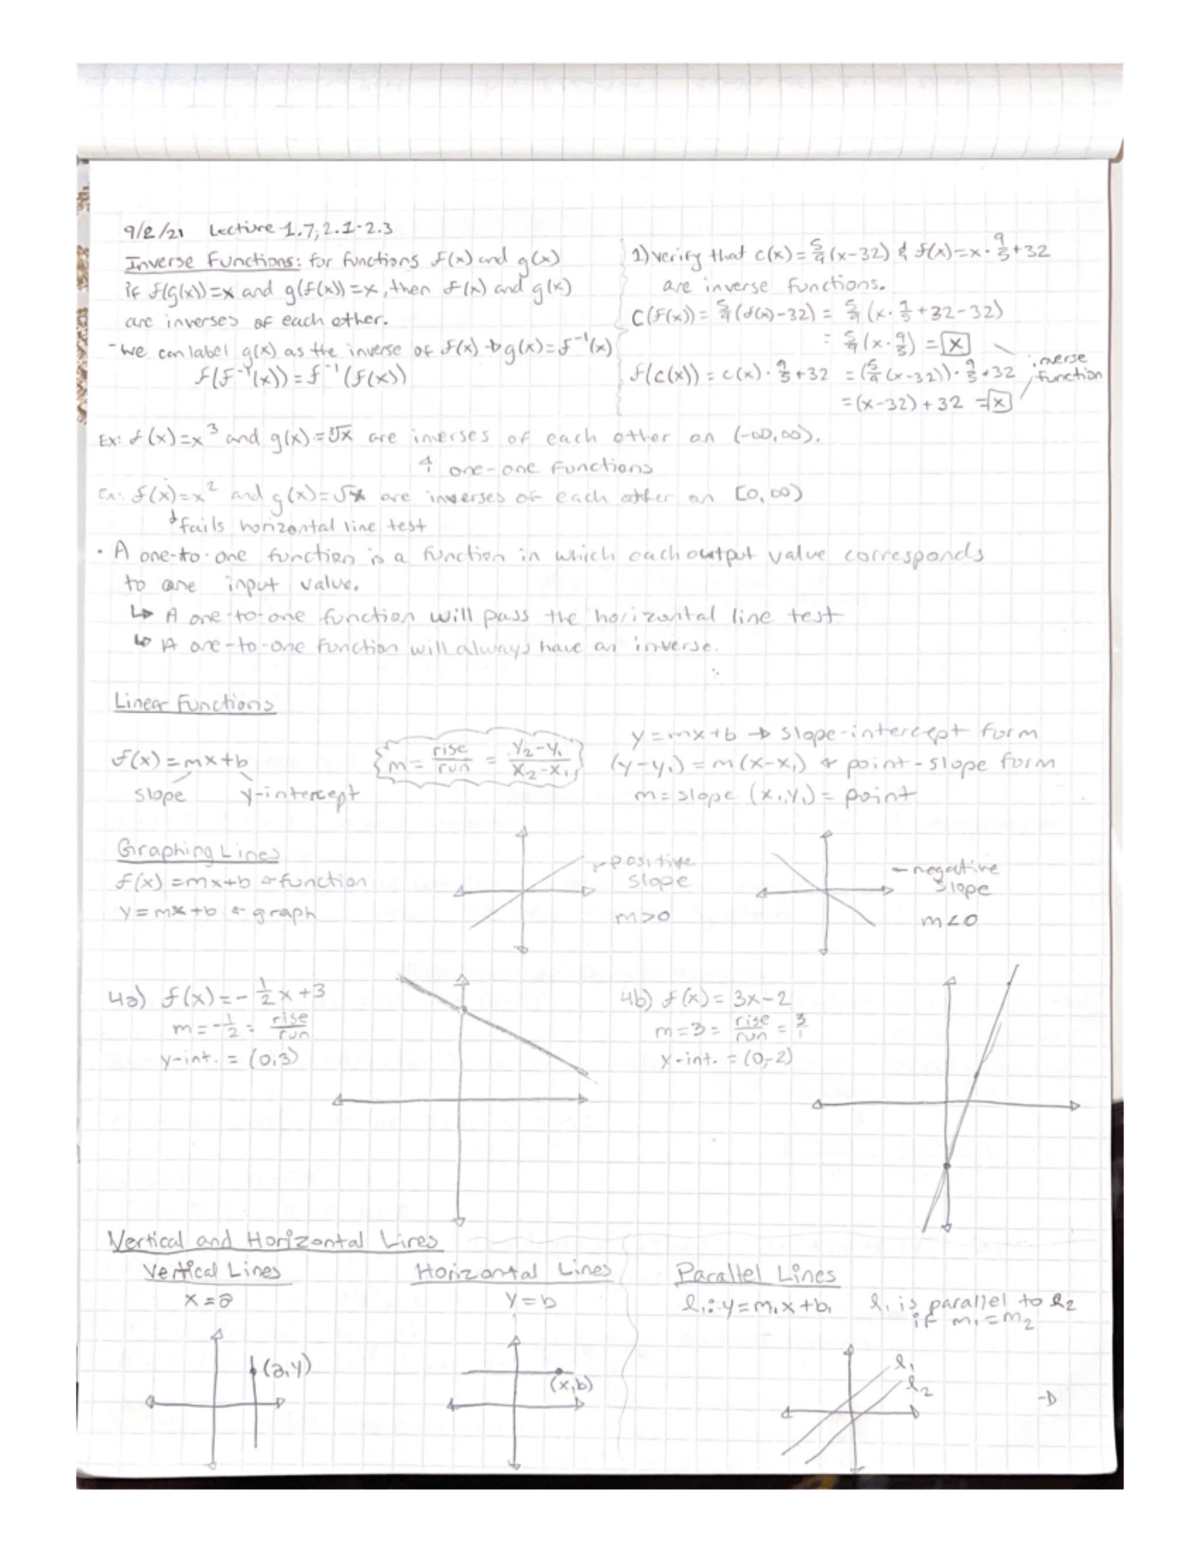 9/2/21 Lecture 1.7, 2.1-2.3
Inverse Functions: for functions f(x) and g(x)
if f(g(x))=x and g(f(x))=x, then f(x) and g(x)
are inverses of each other.
- we can label g(x) as the inverse of f(x) → g(x)=f⁻¹(x)
f(f⁻¹(x))=f⁻¹(f(x))
1) verify that c(x)=5/9(x-32) & f(x)=x·9/5+32
are inverse functions.
C(f(x))=5/9(f(x)-32) = 5/9(x·9/5+32-32)
= 5/9(x·9/5) = x
f(c(x))=c(x)·9/5+32 =(5/9(x-32))·9/5+32
=(x-32)+32 = x
inverse
function
Ex: f(x)=x³ and g(x)=∛x are inverses of each other on (-∞,∞).
↑ one-one functions
Ex: f(x)=x² and g(x)=√x are inverses of each other on [0,∞)
↓ fails horizontal line test
• A one-to-one function is a function in which each output value corresponds
to one input value.
↳ A one-to-one function will pass the horizontal line test
↳ A one-to-one function will always have an inverse.
Linear Functions
f(x)=mx+b
slope y-intercept
m= rise/run = y₂-y₁/x₂-x₁
y=mx+b → slope-intercept form
(y-y₁)=m(x-x₁) ← point-slope form
m=slope (x₁,y₁)= point
Graphing Lines
f(x)=mx+b ← function
y=mx+b ← graph
positive
slope
m>0
negative
slope
m<0
4a) f(x)=-1/2x+3
m=-1/2= rise/run
y-int. = (0,3)
4b) f(x)=3x-2
m=3= rise/run = 3/1
y-int. = (0,-2)
Vertical and Horizontal Lines
Vertical Lines
x=a
(a,y)
Horizontal Lines
y=b
(x,b)
Parallel Lines
l₁: y=m₁x+b₁ l₁ is parallel to l₂
if m₁=m₂
l₁
l₂
→